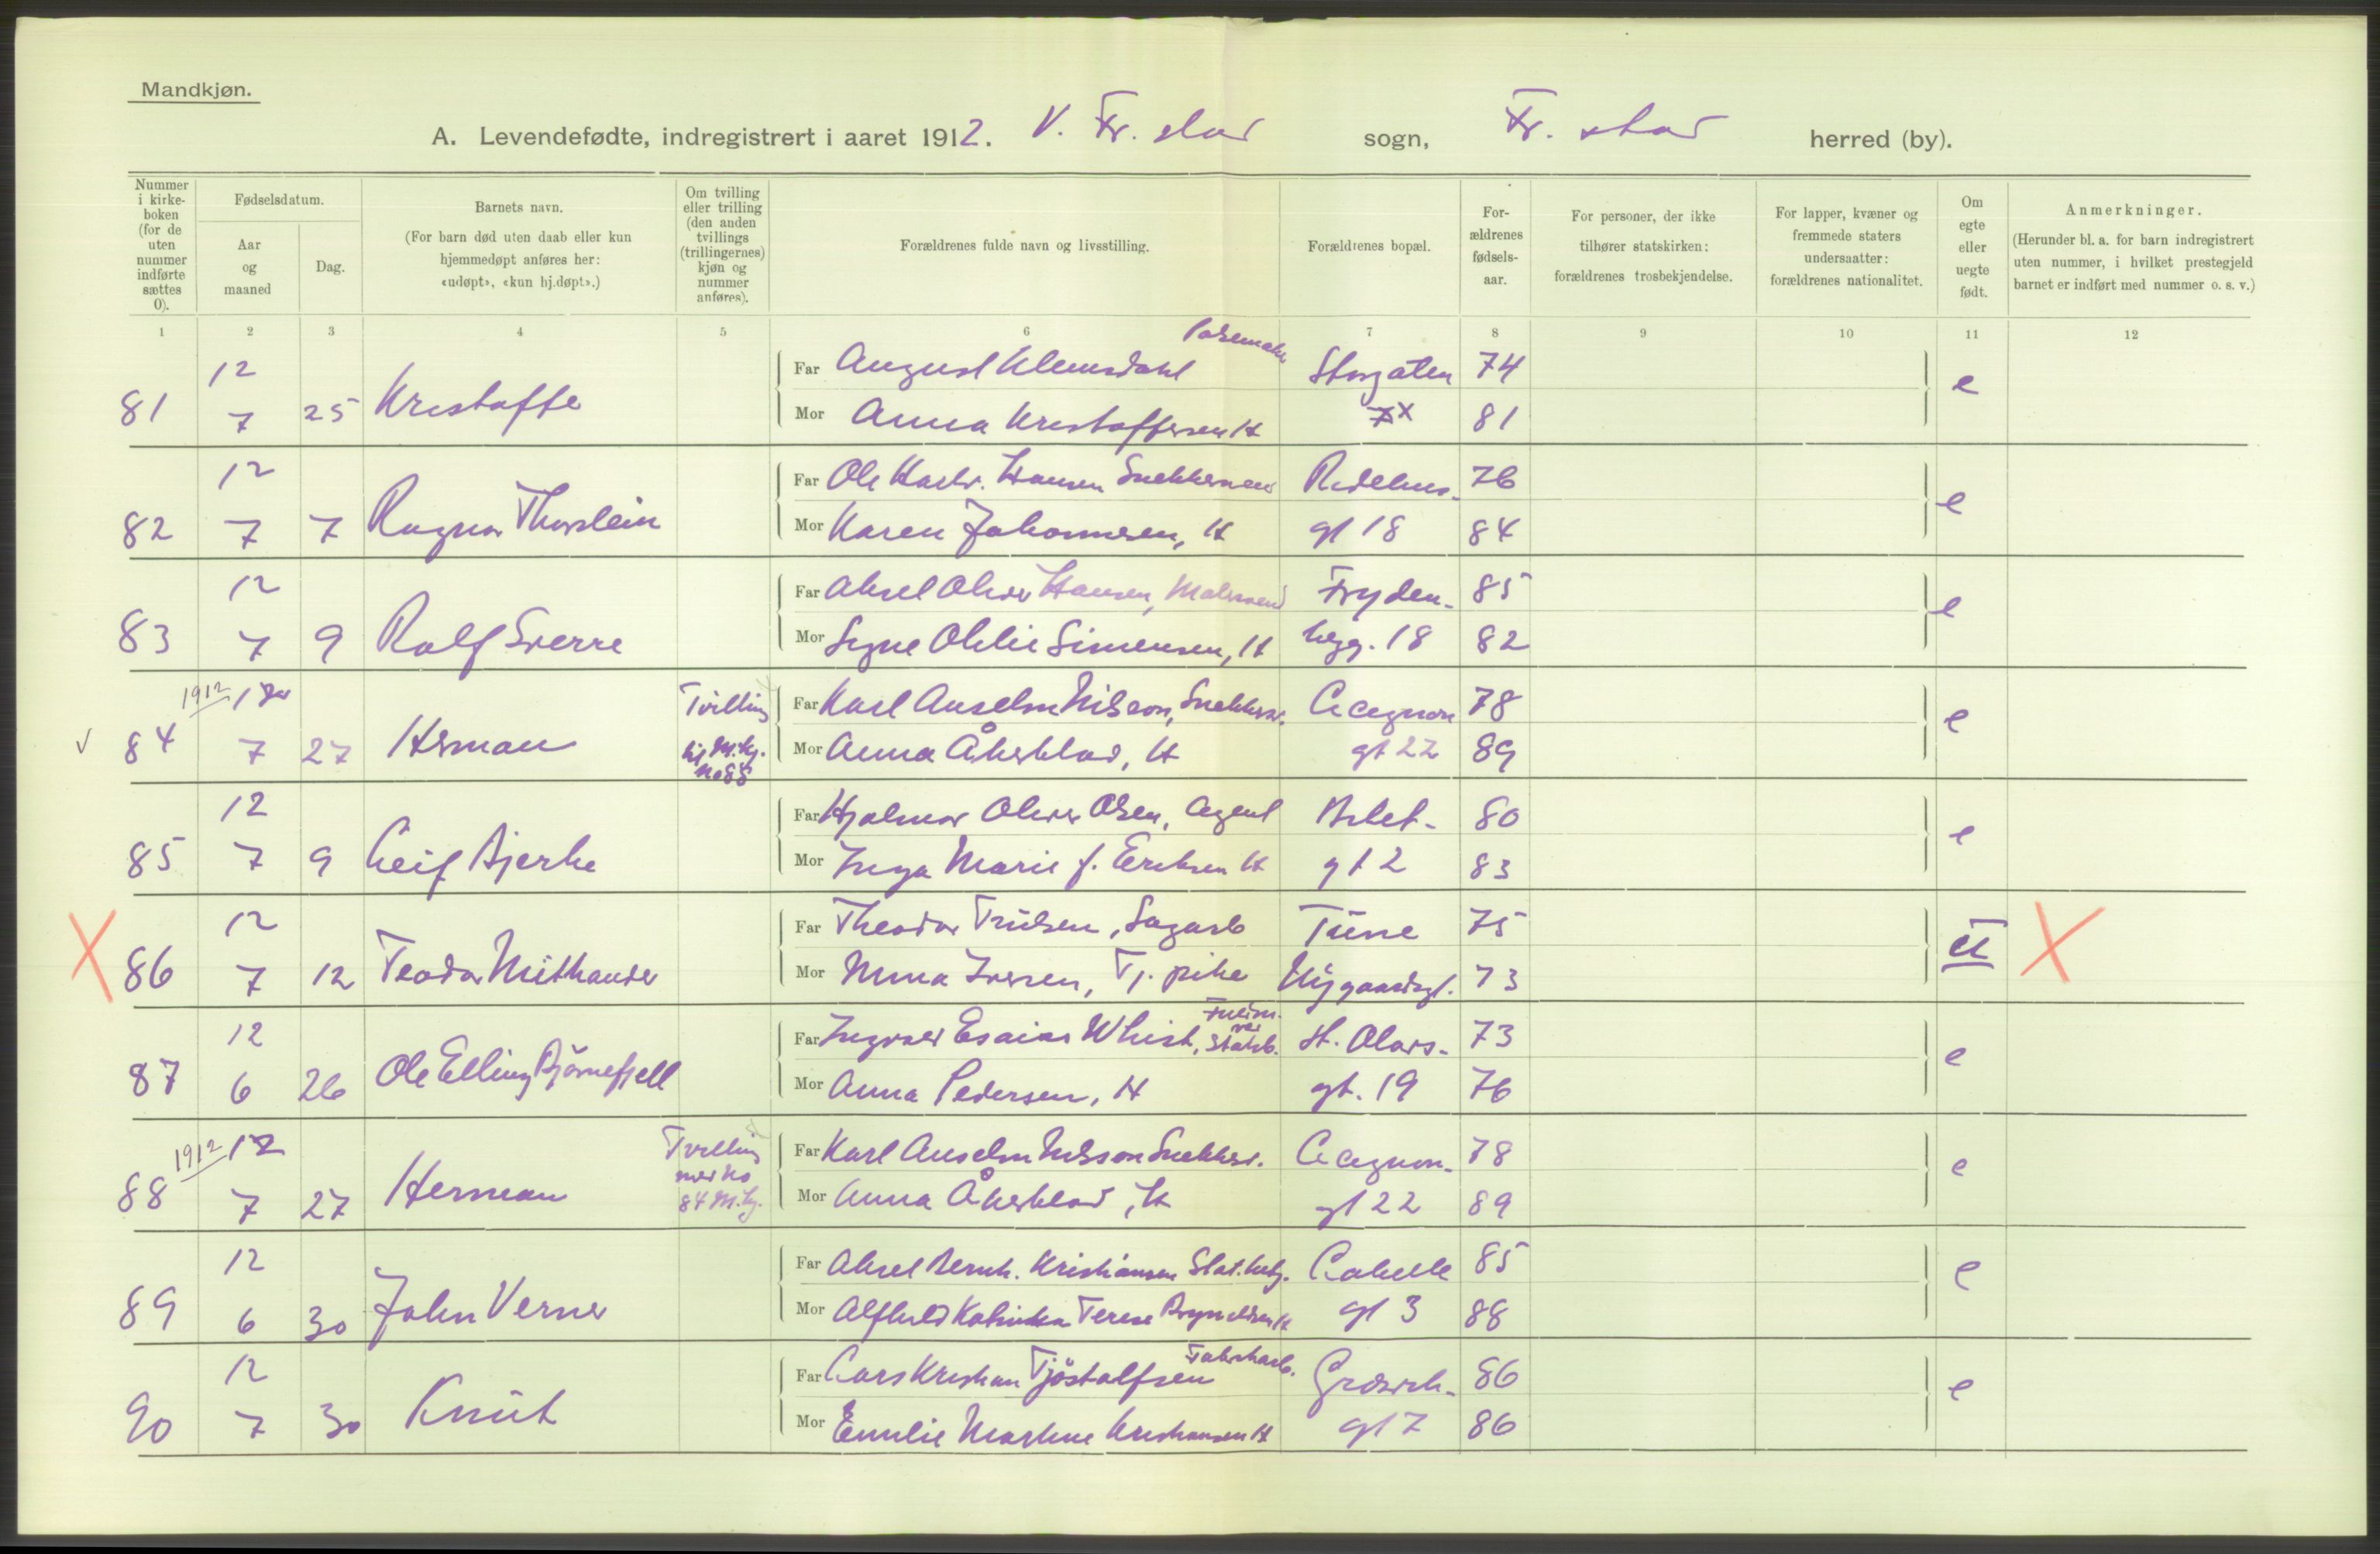 Mandkjøn.
A. Levendefødte, indregistrert i aaret 1912. V. Fr. stad sogn, Fr. stad herred (by).
Nummer i kirke-boken (for de uten nummer indførte sættes 0).
Fødselsdatum.
Aar og maaned
Dag.
Barnets navn.
(For barn død uten daab eller kun hjemmedøpt anføres her: «udøpt», «kun hj.døpt».)
Om tvilling eller trilling (den anden tvillings (trillingernes) kjøn og nummer anføres).
Forældrenes fulde navn og livsstilling.
Forældrenes bopæl.
For-ældrenes fødsels-aar.
For personer, der ikke tilhører statskirken: forældrenes trosbekjendelse.
For lapper, kvæner og fremmede staters undersaatter: forældrenes nationalitet.
Om egte eller uegte født.
Anmerkninger.
(Herunder bl. a. for barn indregistrert uten nummer, i hvilket prestegjeld barnet er indført med nummer o. s. v.)
1 2 3 4 5 6 7 8 9 10 11 12
81 12 7 25 Kristoffe Far August Klemsdahl Storgaten 74 e
Mor Anna Kristoffersen H 7x 81
82 12 7 7 Ragnar Thorstein Far Ole Hansen Snekkersvend 76 e
Mor Karen Johannesen, H gt 18 84
83 12 7 9 Rolf Sverre Far Aksel Oliver Hansen, Malersvend Fryden- 85 e
Mor Signe Otilie Simensen, H begg. 18 82
v 84 1912 12 7 27 Herman Tvilling M.kj. No 88 Far Karl Anselm Nilsson, Snekker. 78 e
Mor Anna Åkerblad, H gt 22 89
85 12 7 9 Leif Bjerke Far Hjalmar Oliver Olsen, Agent 80 e
Mor Inga Marie f. Eriksen H gt 2 83
X 86 12 7 12 Teodor Far Theodor Trulsen, Sagarb Tune 75 u X
Mor Mina Iversen, Tj. pike Nygaardsgt. 73
87 12 6 26 Ole Elling Bjørnefjell Far Ingvald Esaias Whist, St. Olavs- 73 e
Mor Anna Pedersen, H gt. 19 76
88 1912 12 7 27 Herman Tvilling med No 84 M.kj. Far Karl Anselm Nilsson Snekker. 78 e
Mor Anna Åkerblad, H gt 22 89
89 12 6 30 John Verner Far Aksel Bernh. Kristiansen Stat.betj. Capelle 85 e
Mor Alfhild Katinka Terese Bryn H gt 3 88
90 12 7 30 Knut Far Lars Kristian Tjøstolfsen Fabrikarb. 86 e
Mor Emilie Martine Kristiansen H gt 7 86